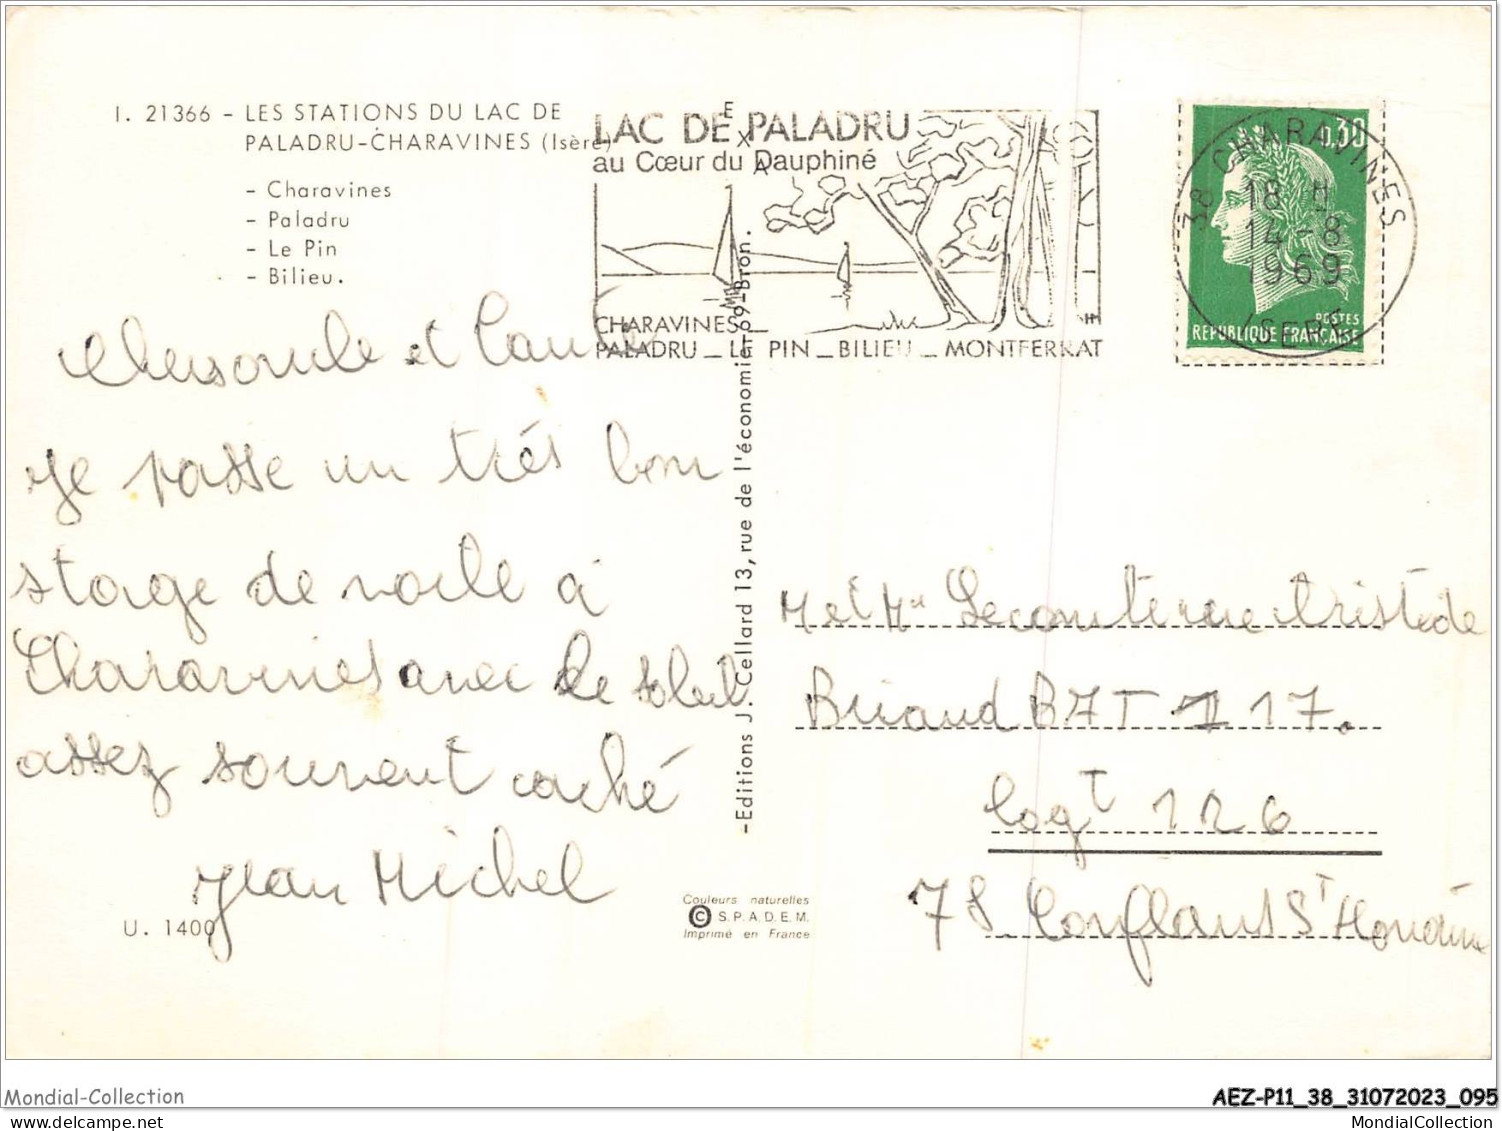 I. 21366 - LES STATIONS DU LAC DE
PALADRU-CHARAVINES (Isère)
- Charavines
- Paladru
- Le Pin
- Bilieu.
LAC DE PALADRU
au Cœur du Dauphiné
CHARAVINES _
PALADRU _ LE PIN _ BILIEU _ MONTFERRAT
38 CHARAVINES
18 H
14-8
1969
ISERE
0,30
POSTES
REPUBLIQUE FRANÇAISE
et
je passe un très bon
stage de voile à
Charavines avec le soleil
assez souvent caché
Jean Michel
U. 1400
-Editions J. Cellard 13, rue de l'économie-69-Bron.
EX A
Couleurs naturelles
© S.P.A.D.E.M.
Imprimé en France
M et Me Lecomte rue Aristide
Briand B7T 1 17.
Logt 126
78 Conflans St Honorine
Mondial-Collection
AEZ-P11_38_31072023_095
MondialCollection